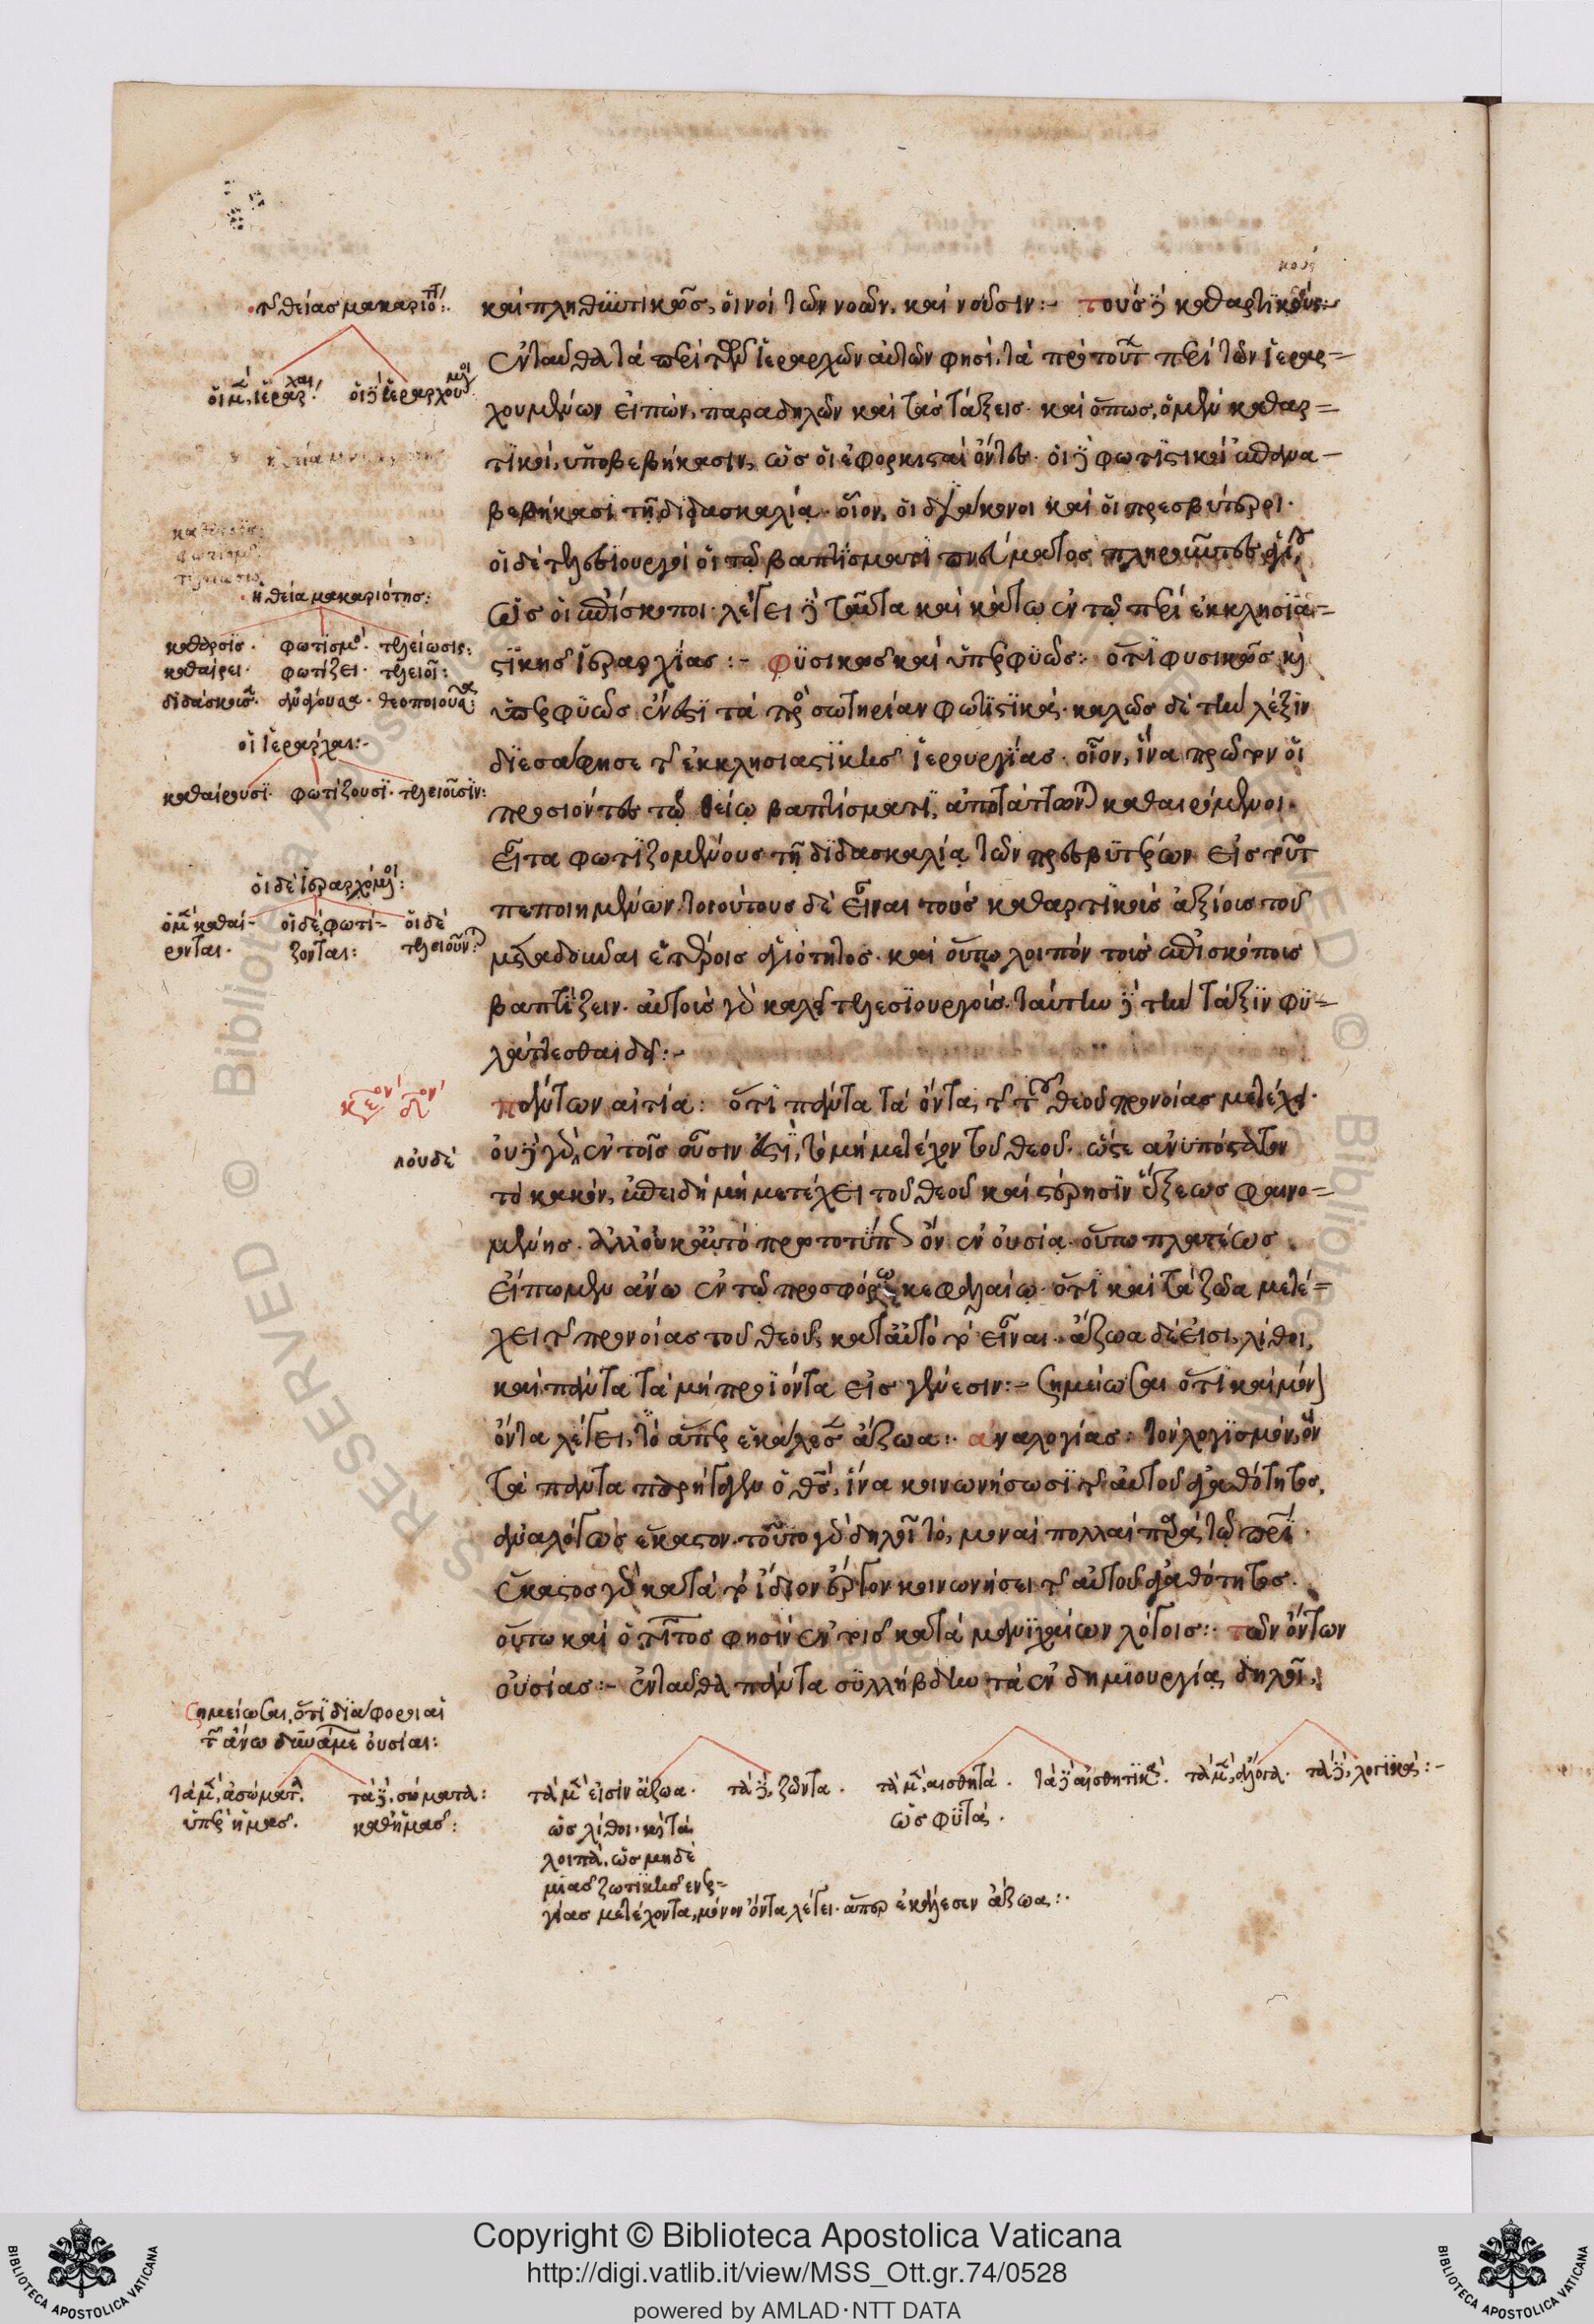 καὶ πληθυντικῶς, οἱ νοΐ τῶν νοῶν, καὶ νοῦσιν:- τοὺς δὲ καθαρτικούς:-
Ἐνταῦθα τὰ περὶ τῶν ἱεραρχῶν αὐτῶν φησί. τὰ πρὸ τούτου περὶ τῶν ἱεραρ=
χουμένων εἰπών, παραδηλῶν καὶ τὰς τάξεις. καὶ ὅπως, οἱ μὲν καθαρ=
τικοί, ὑποβεβήκασιν, ὡς οἱ ἐφορκισταὶ ὄντες. οἱ δὲ φωτιστικοὶ ἐπανα-
βεβήκασι τῇ διδασκαλίᾳ. οἷον, οἱ διάκονοι καὶ οἱ πρεσβύτεροι.
οἱ δὲ τελεσιουργοὶ οἱ τῷ βαπτίσματι πνεύματος πληροῦντες ἁγίου
ὡς οἱ ἐπίσκοποι. λέγει δὲ ταῦτα καὶ κάτω ἐν τῷ περὶ ἐκκλησια=
στικῆς ἱεραρχίας:- φυσικῶς καὶ ὑπερφυῶς: ὅτι φυσικῶς καὶ
ὑπερφυῶς ἔνεστι τὰ πρὸς σωτηρίαν φωτιστικά. καλῶς δὲ τὴν λέξιν
διεσάφησε τῆς ἐκκλησιαστικῆς ἱερουργίας. οἷον, ἵνα πρῶτον οἱ
προσιόντες τῷ θείῳ βαπτίσματι, ἀποτάττωνται καθαιρόμενοι.
εἶτα φωτιζομένους τῇ διδασκαλίᾳ τῶν πρεσβυτέρων εἰς τοῦτο
πεποιημένων. τοιούτους δὲ εἶναι τοὺς καθαρτικοὺς ἀξίους τοῦ
μεταδιδόναι ἑτέροις ἁγιότητος. καὶ οὕτω λοιπὸν τοῖς ἐπισκόποις
βαπτίζειν. αὐτοὺς γὰρ καλεῖ τελεσιουργούς. ταύτην δὲ τὴν τάξιν φυ=
λάττεσθαι δεῖ:-
πάντων αἰτία: ὅτι πάντα τὰ ὄντα, τῆς τοῦ θεοῦ προνοίας μετέχει.
οὐδὲ γὰρ, ἐν τοῖς οὖσιν ἐστί, τὸ μὴ μετέχον τοῦ θεοῦ. ὥστε ἀνυπόστατον
τὸ κακόν, ἐπειδὴ μὴ μετέχει τοῦ θεοῦ καὶ στέρησιν ἕξεως φαινο=
μένης. ἀλλ' οὐκ αὐτὸ πρωτοτύπως ὂν ἐν οὐσίᾳ. οὕτω πλατέως
εἴπωμεν ἄνω ἐν τῷ προσφόρῳ κεφαλαίῳ. ὅτι καὶ τὰ ζῶα μετέ=
χει τῆς προνοίας τοῦ θεοῦ, κατ' αὐτὸ τὸ εἶναι. ἄζωα δέ εἰσι, λίθοι,
καὶ πάντα τὰ μὴ προϊόντα εἰς γένεσιν:- σημείωσαι ὅτι καὶ μόνον
ὄντα λέγει, τὸ ἅπερ ἐκάλεσεν ἄζωα:. ἀναλογίας: τὸν λογισμόν, ὃν
τὰ πάντα παρήγαγεν ὁ θεός, ἵνα κοινωνήσωσι τῆς αὐτοῦ ἀγαθότητος,
ἀναλόγως ἕκαστον. τοῦτο γὰρ δηλοῖ τό, μοναὶ πολλαὶ παρὰ τῷ πατρί.
ἕκαστος γὰρ κατὰ τὸ ἴδιον ἔργον κοινωνήσει τῆς αὐτοῦ ἀγαθότητος.
οὕτω καὶ ὁ τίτος φησὶν ἐν τοῖς κατὰ μανιχαίων λόγοις:. τῶν ὄντων
οὐσίας:- ἐνταῦθα πάντα συλλήβδην τὰ ἐν δημιουργίᾳ δηλοῖ,
τῆς θείας μακαριότητος:.
οἱ μὲν, ἱεράρχαι.
οἱ δὲ ἱεραρχούμενοι
ἡ θεία μακαριότης:
κάθαρσις. φωτισμός. τελείωσις:
καθαίρει. φωτίζει. τελειοῖ:
οἱ ἱεράρχαι:-
καθαίρουσι. φωτίζουσι. τελειοῦσιν:
οἱ δὲ ἱεραρχούμενοι:
οἱ μὲν καθαί- οἱ δὲ, φωτί- οἱ δὲ
ρονται. ζονται: τελειοῦνται
οὐδὲ
σημείωσαι, ὅτι διάφοροι αἱ
τῶν ἄνω δυνάμεων οὐσίαι:
τὰ μὲν, ἀσώματα τὰ δὲ, σώματα:
ὑπὲρ ἡμᾶς. καθ' ἡμᾶς:
τὰ μὲν εἰσὶν ἄζωα. τὰ δὲ, ζῶντα. τὰ μὲν, αἰσθητά. τὰ δὲ αἰσθητικά. τὰ μὲν, ἄλογα. τὰ δὲ, λογικά:-
ὡς λίθοι. καὶ τὰ ὡς φυτά.
λοιπὰ, ὡς μηδὲ
μιᾶς ζωτικῆς ἐνερ=
γίας μετέχοντα, μόνον ὄντα λέγει. ἅπερ ἐκάλεσεν ἄζωα:.
Copyright © Biblioteca Apostolica Vaticana
http://digi.vatlib.it/view/MSS_Ott.gr.74/0528
powered by AMLAD·NTT DATA
BIBLIOTECA APOSTOLICA VATICANA
BIBLIOTECA APOSTOLICA VATICANA